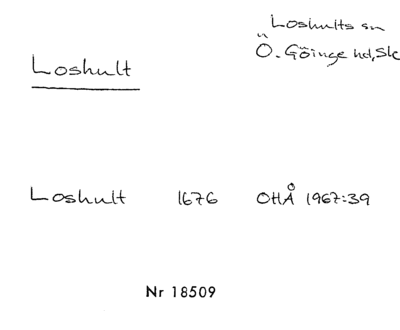 Loshults sn
Ö. Göinge hd, Sk
Loshult
Loshult 1676 OHÅ 1967:39
Nr 18509